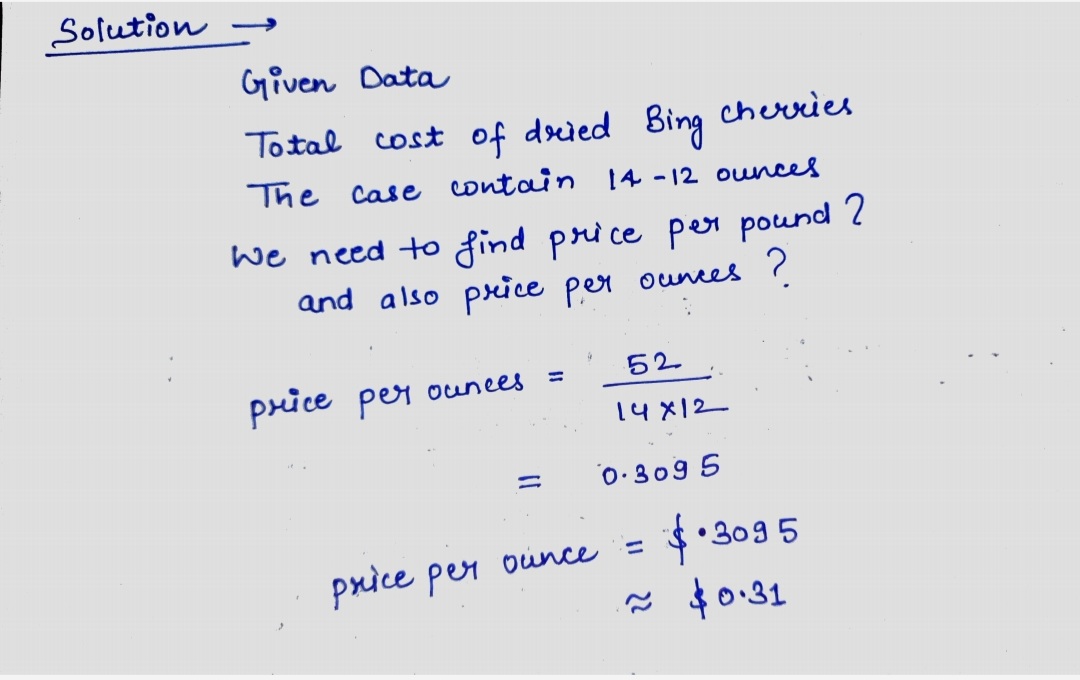 Solution →
Given Data
Total cost of dried Bing cherries
The case contain 14-12 ounces
We need to find price per pound ?
and also price per ounces ?
price per ounces = 52 / 14 x 12
= 0.3095
price per ounce = $ .3095
≈ $0.31